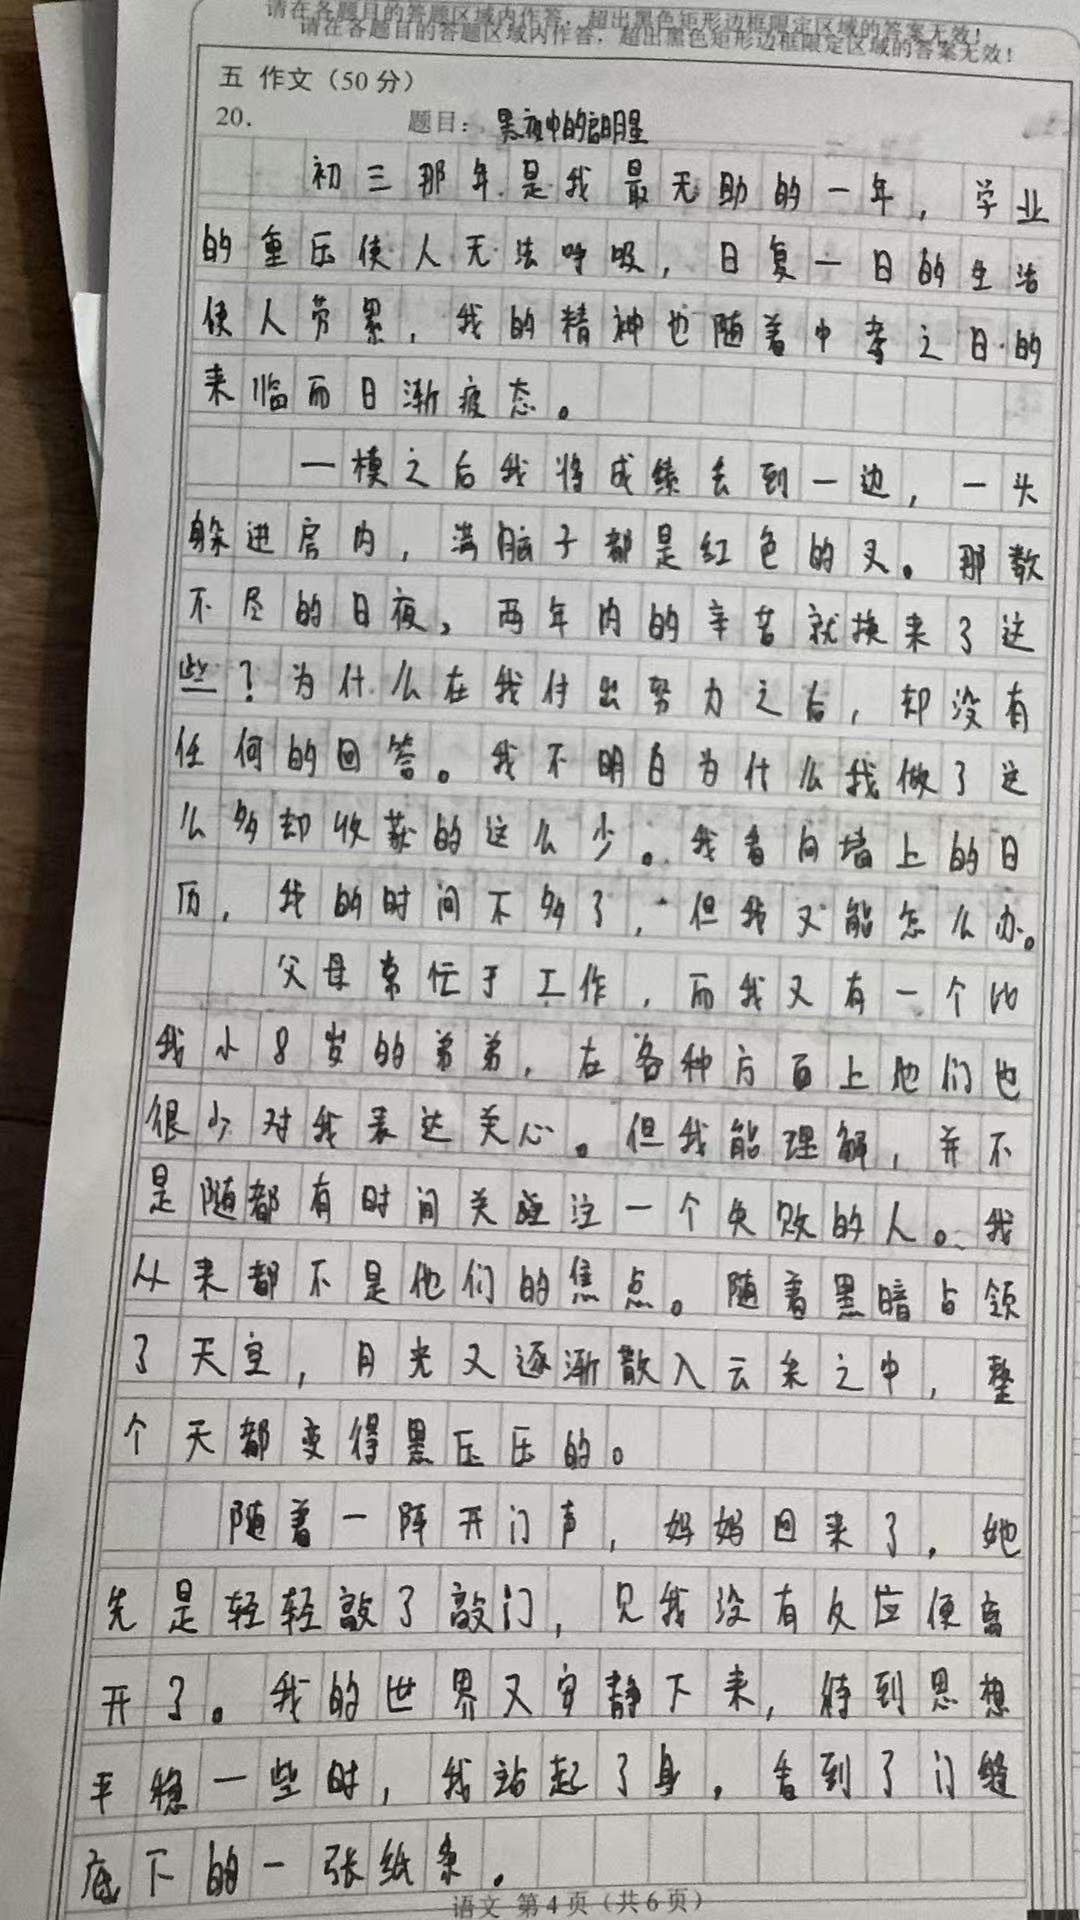 请在各题目的答题区域内作答，超出黑色矩形边框限定区域的答案无效！
请在各题目的答题区域内作答，超出黑色矩形边框限定区域的答案无效！
五 作文（50分）
20. 题目：黑夜中的启明星
初三那年是我最无助的一年，学业
的重压使人无法呼吸，日复一日的生活
使人劳累，我的精神也随着中考之日的
来临而日渐疲态。
一模之后我将成绩丢到一边，一头
躲进房内，满脑子都是红色的叉。那数
不尽的日夜，两年内的辛苦就换来了这
些？为什么在我付出努力之后，却没有
任何的回答。我不明白为什么我做了这
么多却收获的这么少。我看向墙上的日
历，我的时间不多了，但我又能怎么办。
父母常忙于工作，而我又有一个比
我小8岁的弟弟，在各种方面上他们也
很少对我表达关心。但我能理解，并不
是随都有时间关注一个失败的人。我
从来都不是他们的焦点。随着黑暗占领
了天空，月光又逐渐散入云朵之中，整
个天都变得黑压压的。
随着一阵开门声，妈妈回来了，她
先是轻轻敲了敲门，见我没有反应便离
开了。我的世界又安静下来，待到思想
平稳一些时，我站起了身，看到了门缝
底下的一张纸条。
语文 第4页（共6页）